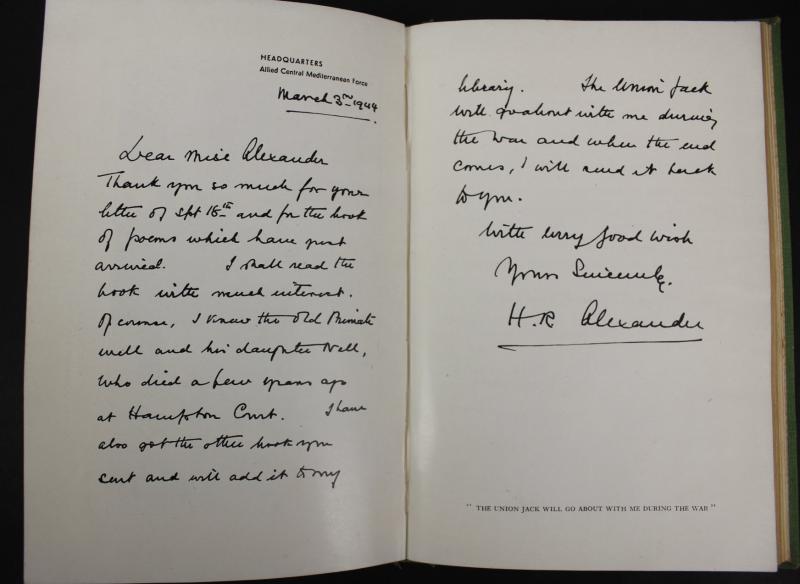 HEADQUARTERS
Allied Central Mediterranean Force
March 3rd 1944
Dear Miss Alexander
Thank you so much for your
letter of Spt 18th and for the book
of poems which have just
arrived. I shall read the
book with much interest.
Of course, I knew the Old Primate
well and his daughter Nell,
who died a few years ago
at Hampton Court. I have
also got the other book you
sent and will add it to my
library. The Union Jack
will go about with me during
the war and when the end
comes, I will send it back
to you.
With every good wish
Yours Sincerely.
H. R Alexander
" THE UNION JACK WILL GO ABOUT WITH ME DURING THE WAR "